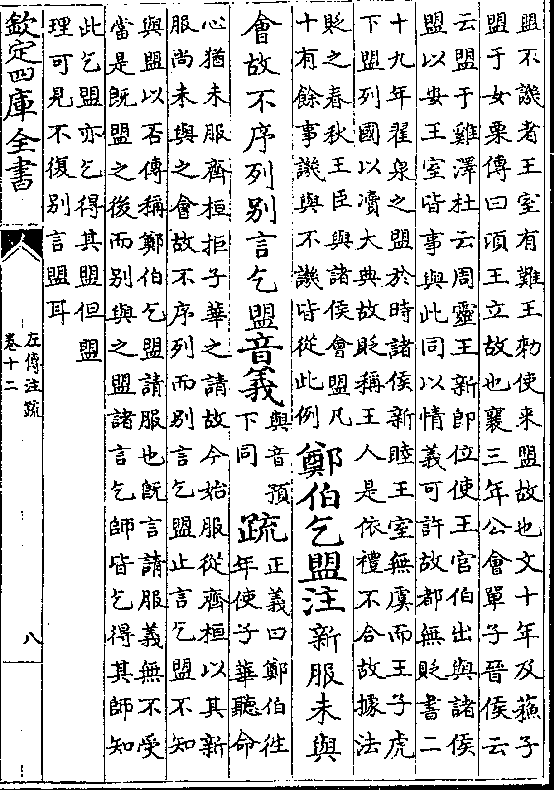 盟不譏者王室有難王勑使来盟故也文十年及蘇子
盟于女栗傳曰頃王立故也襄三年公會單子晉侯云
云盟于雞澤杜云周靈王新即位使王官伯出與諸侯
盟以安王室皆事與此同以情義可許故都無貶書二
十九年翟泉之盟於時諸侯新睦王室無虞而王子虎
下盟列國以瀆大典故貶稱王人是依禮不合故據法
貶之春秋王臣與諸侯會盟凡
十有餘事譏與不譏皆從此例
鄭伯乞盟注新服未與
會故不序列别言乞盟音義
與音預
下同
疏
正義曰鄭伯往
年使子華聽命
心猶未服齊桓拒子華之請故今始服從齊桓以其新
服尚未與之會故不序列而别言乞盟止言乞盟不知
與盟以否傳稱鄭伯乞盟請服也既言請服義無不受
當是既盟之後而别與之盟諸言乞師皆乞得其師知
此乞盟亦乞得其盟但盟
理可見不復别言盟耳
欽定四庫全書
左傳注疏
卷十二
八